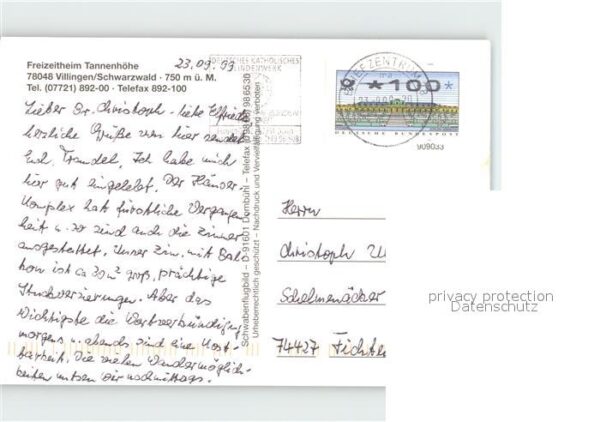 Freizeitheim Tannenhöhe
78048 Villingen/Schwarzwald · 750 m ü. M.
Tel. (07721) 892-00 · Telefax 892-100
23.09.99
Lieber Br. Christoph - liebe
herzliche Grüße von hier sendet
Euch Traudel. Ich habe mich
hier gut eingelebt. Der Häuser-
Komplex hat fürstliche Vergangen
heit u. so sind auch die Zimmer
ausgestattet. Unser Zim. mit Bal-
kon ist ca 30 m² groß, prächtige
Stuckverzierungen. Aber das
Wichtigste die Wortverkündigung
morgens u. abends sind eine Kost-
barkeit. Die vielen Wandermöglich-
keiten nutzen wir nachmittags.
Schwabenflugbild – D-91601 Dombühl – Telefax (0 98 68) 986530
Urheberrechtlich geschützt – Nachdruck und Vervielfältigung verboten
KATHOLISCHES
BLINDENWERK
BRIEFZENTRUM 78
*100*
DEUTSCHE BUNDESPOST
909033
Herrn
Christoph
Schelmenäcker
74427 Fichten
privacy protection
Datenschutz